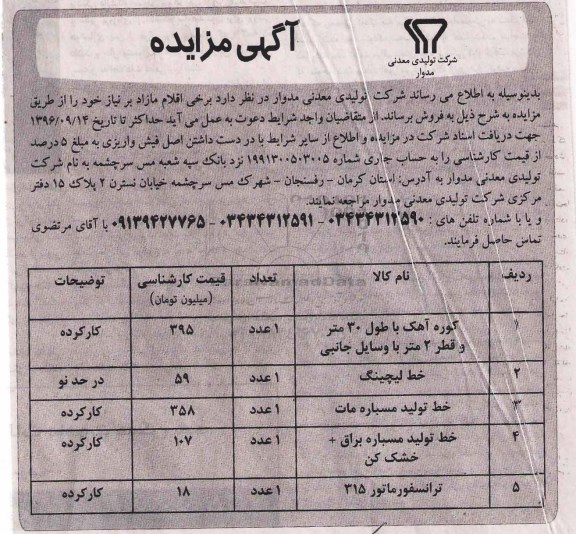 آگهی مزایده
شرکت تولیدی معدنی
مدوار
بدینوسیله به اطلاع می رساند شرکت تولیدی معدنی مدوار در نظر دارد برخی اقلام مازاد بر نیاز خود را از طریق
مزایده به شرح ذیل به فروش برساند. از متقاضیان واجد شرایط دعوت به عمل می آید حداکثر تا تاریخ ۱۳۹۶/۰۹/۱۴
جهت دریافت اسناد شرکت در مزایده و اطلاع از سایر شرایط با در دست داشتن اصل فیش واریزی به مبلغ ۵ درصد
از قیمت کارشناسی را به حساب جاری شماره ۱۹۹۱۳۰۰۵۰۳۰۰۵ نزد بانک سپه شعبه مس سرچشمه به نام شرکت
تولیدی معدنی مدوار به آدرس: استان کرمان - رفسنجان - شهرک مس سرچشمه خیابان نسترن ۲ پلاک ۱۵ دفتر
مرکزی شرکت تولیدی معدنی مدوار مراجعه نمایند.
و یا با شماره تلفن های : ۰۳۴۳۴۳۱۲۵۹۰ - ۰۳۴۳۴۳۱۲۵۹۱ - ۰۹۱۳۹۴۲۷۷۶۵ با آقای مرتضوی
تماس حاصل فرمایند.
ردیف نام کالا تعداد قیمت کارشناسی توضیحات
(میلیون تومان)
۱ کوره آهک با طول ۳۰ متر ۱ عدد ۳۹۵ کارکرده
و قطر ۲ متر با وسایل جانبی
۲ خط لیچینگ ۱ عدد ۵۹ در حد نو
۳ خط تولید مسباره مات ۱ عدد ۳۵۸ کارکرده
۴ خط تولید مسباره براق + ۱ عدد ۱۰۷ کارکرده
خشک کن
۵ ترانسفورماتور ۳۱۵ ۱ عدد ۱۸ کارکرده